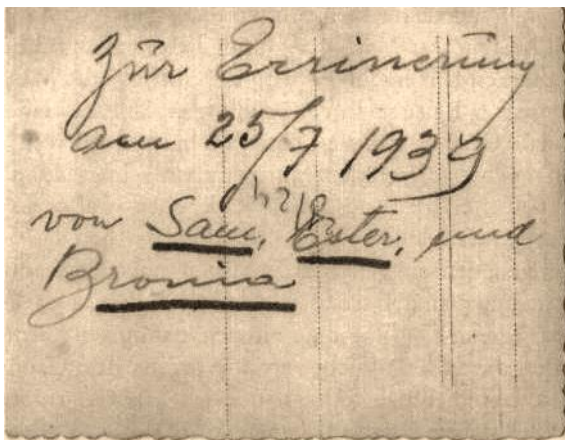 Zūr Errinerūng
am 25/7 1939
von Sam, Ester, und
Bronia